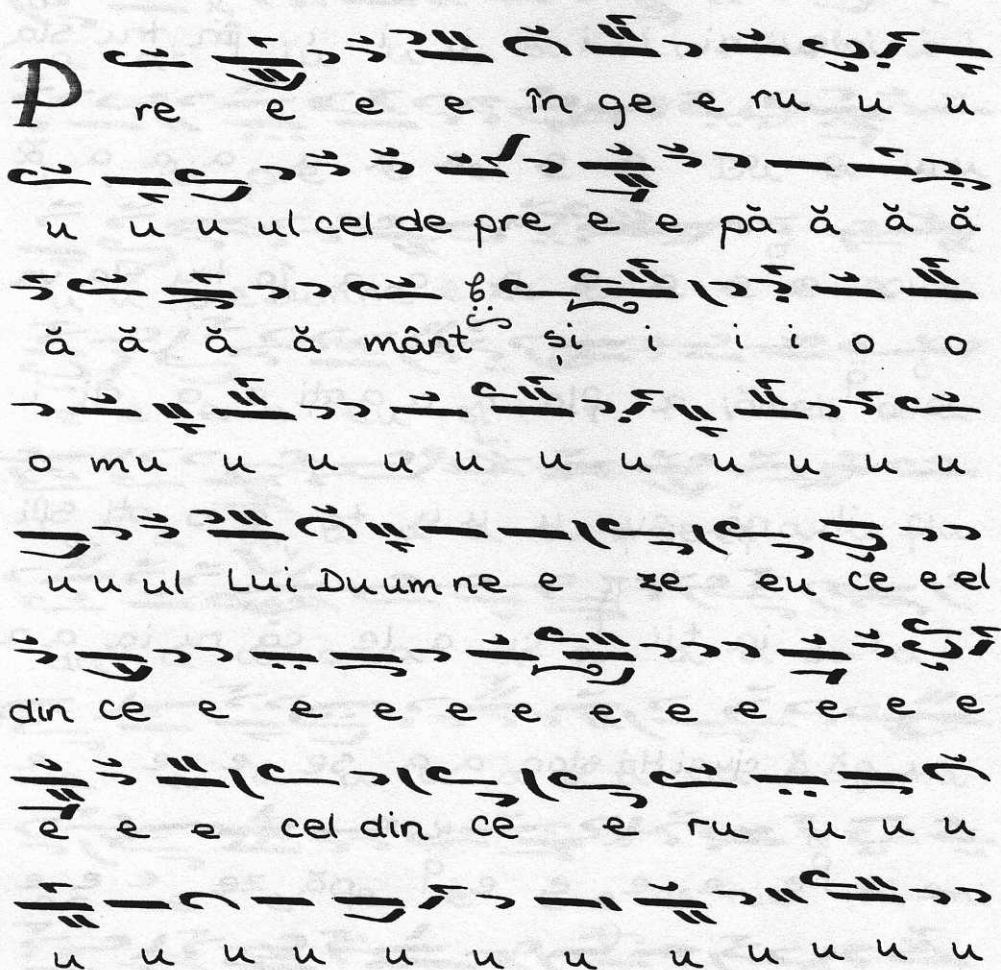 P re e e e în ge e ru u u
u u u ul cel de pre e e pă ă ă ă
ă ă ă ă mânt și i i i o o
o mu u u u u u u u u u u
u u ul Lui Du um ne e ze eu ce e el
din ce e e e e e e e e e e
e e e cel din ce e ru u u u
u u u u u u u u u u u